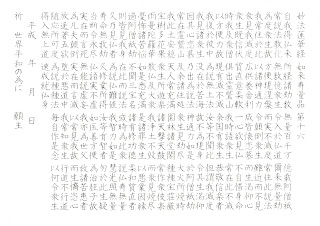 妙法蓮華経如来寿量品第十六
自我得仏来 所経諸劫数 無量百千万 億載阿僧祇
常説法教化 無数億衆生 令入於仏道 爾来無量劫
為度衆生故 方便現涅槃 而実不滅度 常住此説法
我常住於此 以諸神通力 令顛倒衆生 雖近而不見
衆見我滅度 広供養舎利 咸皆懐恋慕 而生渇仰心
衆生既信伏 質直意柔軟 一心欲見仏 不自惜身命
時我及衆僧 倶出霊鷲山 我時語衆生 常在此不滅
以方便力故 現有滅不滅 余国有衆生 恭敬信楽者
我復於彼中 為説無上法 汝等不聞此 但謂我滅度
我見諸衆生 没在於苦海 故不為現身 令其生渇仰
因其心恋慕 乃出為説法 神通力如是 於阿僧祇劫
常在霊鷲山 及余諸住処 衆生見劫尽 大火所焼時
我此土安穏 天人常充満 園林諸堂閣 種種宝荘厳
宝樹多花果 衆生所遊楽 諸天撃天鼓 常作衆伎楽
雨曼陀羅華 散仏及大衆 我浄土不毀 而衆見焼尽
憂怖諸苦悩 如是悉充満 是諸罪衆生 以悪業因縁
過阿僧祇劫 不聞三宝名 諸有修功徳 柔和質直者
則皆見我身 在此而説法 或時為此衆 説仏寿無量
久乃見仏者 為説仏難値 我智力如是 慧光照無量
寿命無数劫 久修業所得 汝等有智者 勿於此生疑
当断令永尽 仏語実不虚 如医善方便 為治狂子故
実在而言死 無能説虚妄 我亦為世父 救諸苦患者
為凡夫顛倒 実在而言滅 以常見我故 而生憍恣心
放逸著五欲 堕於悪道中 我常知衆生 行道不行道
随応所可度 為説種種法 毎自作是念 以何令衆生
得入無上道 速成就仏身
平成 年 月 日
祈 世界平和の為に 願主